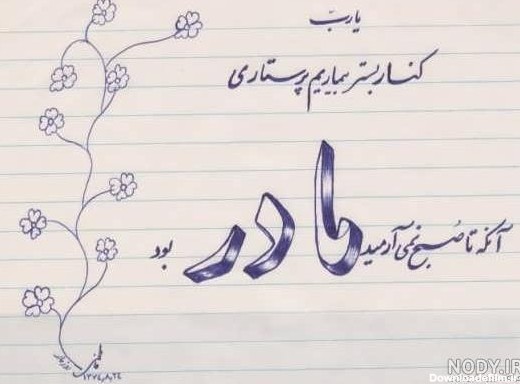 یا رب
کنار بستر بیماریم پرستاری
آنکه تا صبح نمی آرمید مادر بود
۱۳۷۴،۸،۲۴
NODY.IR
Downloadefilm.ir